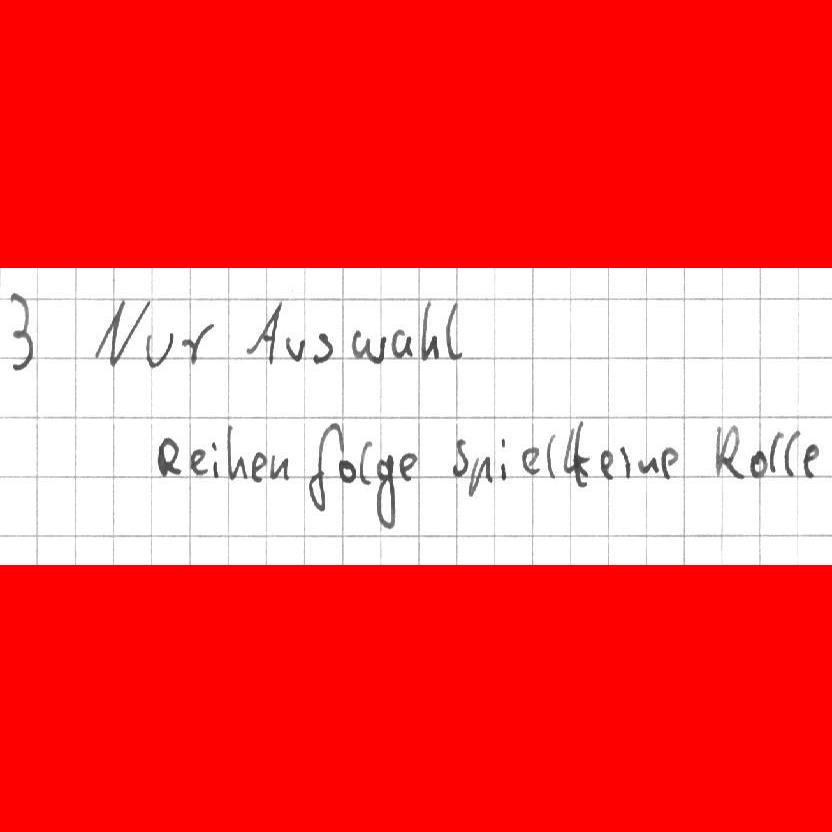 3 Nur Auswahl
Reihenfolge spielt keine Rolle